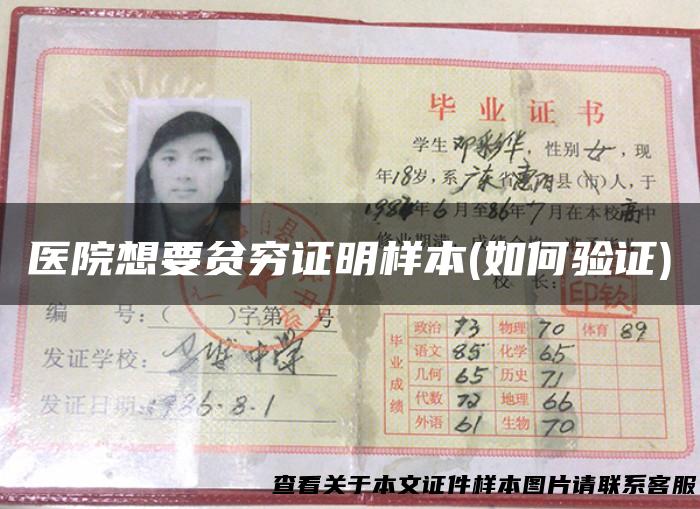 毕业证书
学生邓彩华，性别女，现
年18岁，系广东省惠阳县(市)人，于
年6月至86年7月在本校高中
医院想要贫穷证明样本(如何验证)
校 长：
印钦
编 号：（ ）字第 号
发证学校： 中学
发证日期：1986.8.1
毕业成绩
政治 73 物理 70 体育 89
语文 85 化学 65
几何 65 历史 71
代数 72 地理 66
外语 61 生物 70
查看关于本文证件样本图片请联系客服